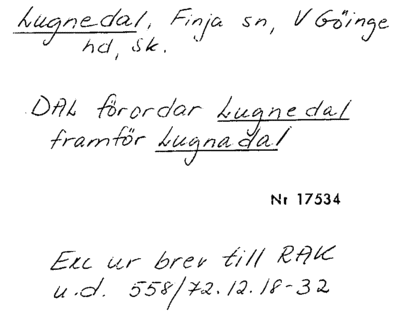 Lugnedal, Finja sn, V Göinge
hd, Sk.
DAL förordar Lugnedal
framför Lugnadal
Nr 17534
Exc ur brev till RAK
u.d. 558/72.12.18-32